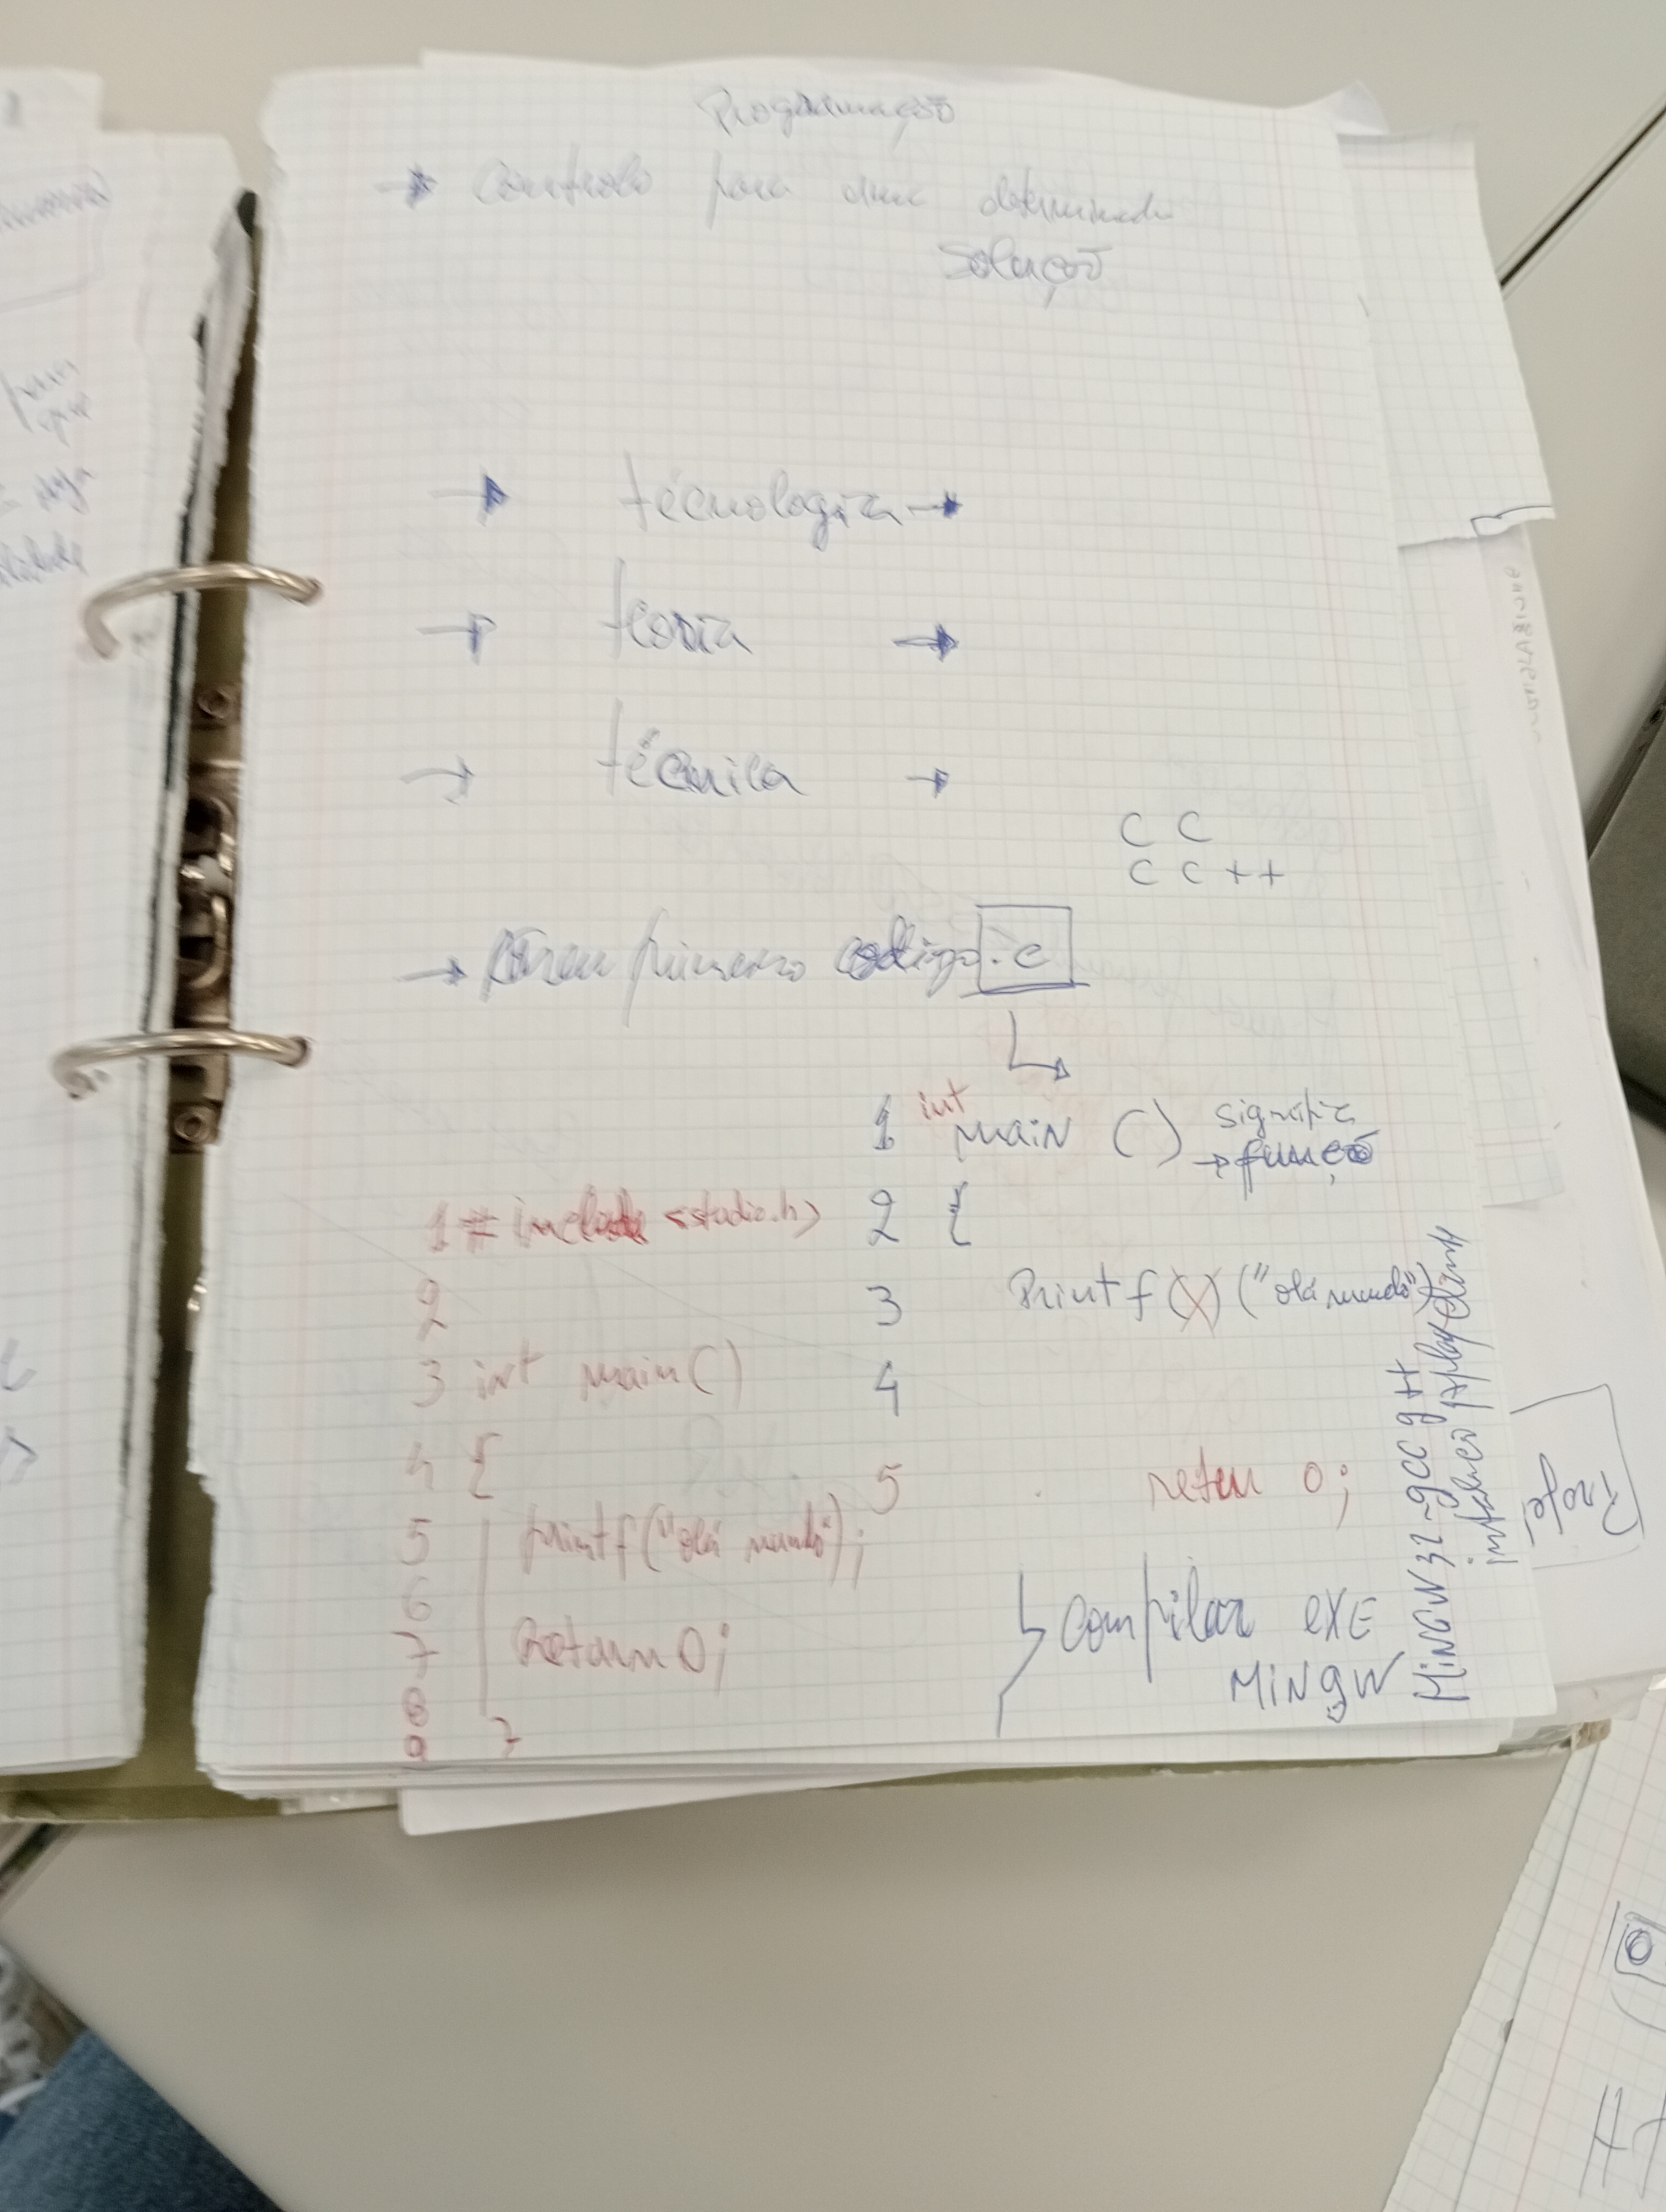 Programação
→ Controlo para uma determinada
solução
→ técnologia →
→ teoria →
→ técnica →
C C
C C ++
→ primeiro codigo .c
1 int main () significa
→ função
2 {
3 Printf (X) ("olá mundo")
4
5 retur 0;
compilar exe
MiNgW
1 # include <stadio.h>
2
3 int main()
4 {
5 printf("olá mundo");
6
7 Return 0;
8
9 }
MiNGW 32-gcc g++